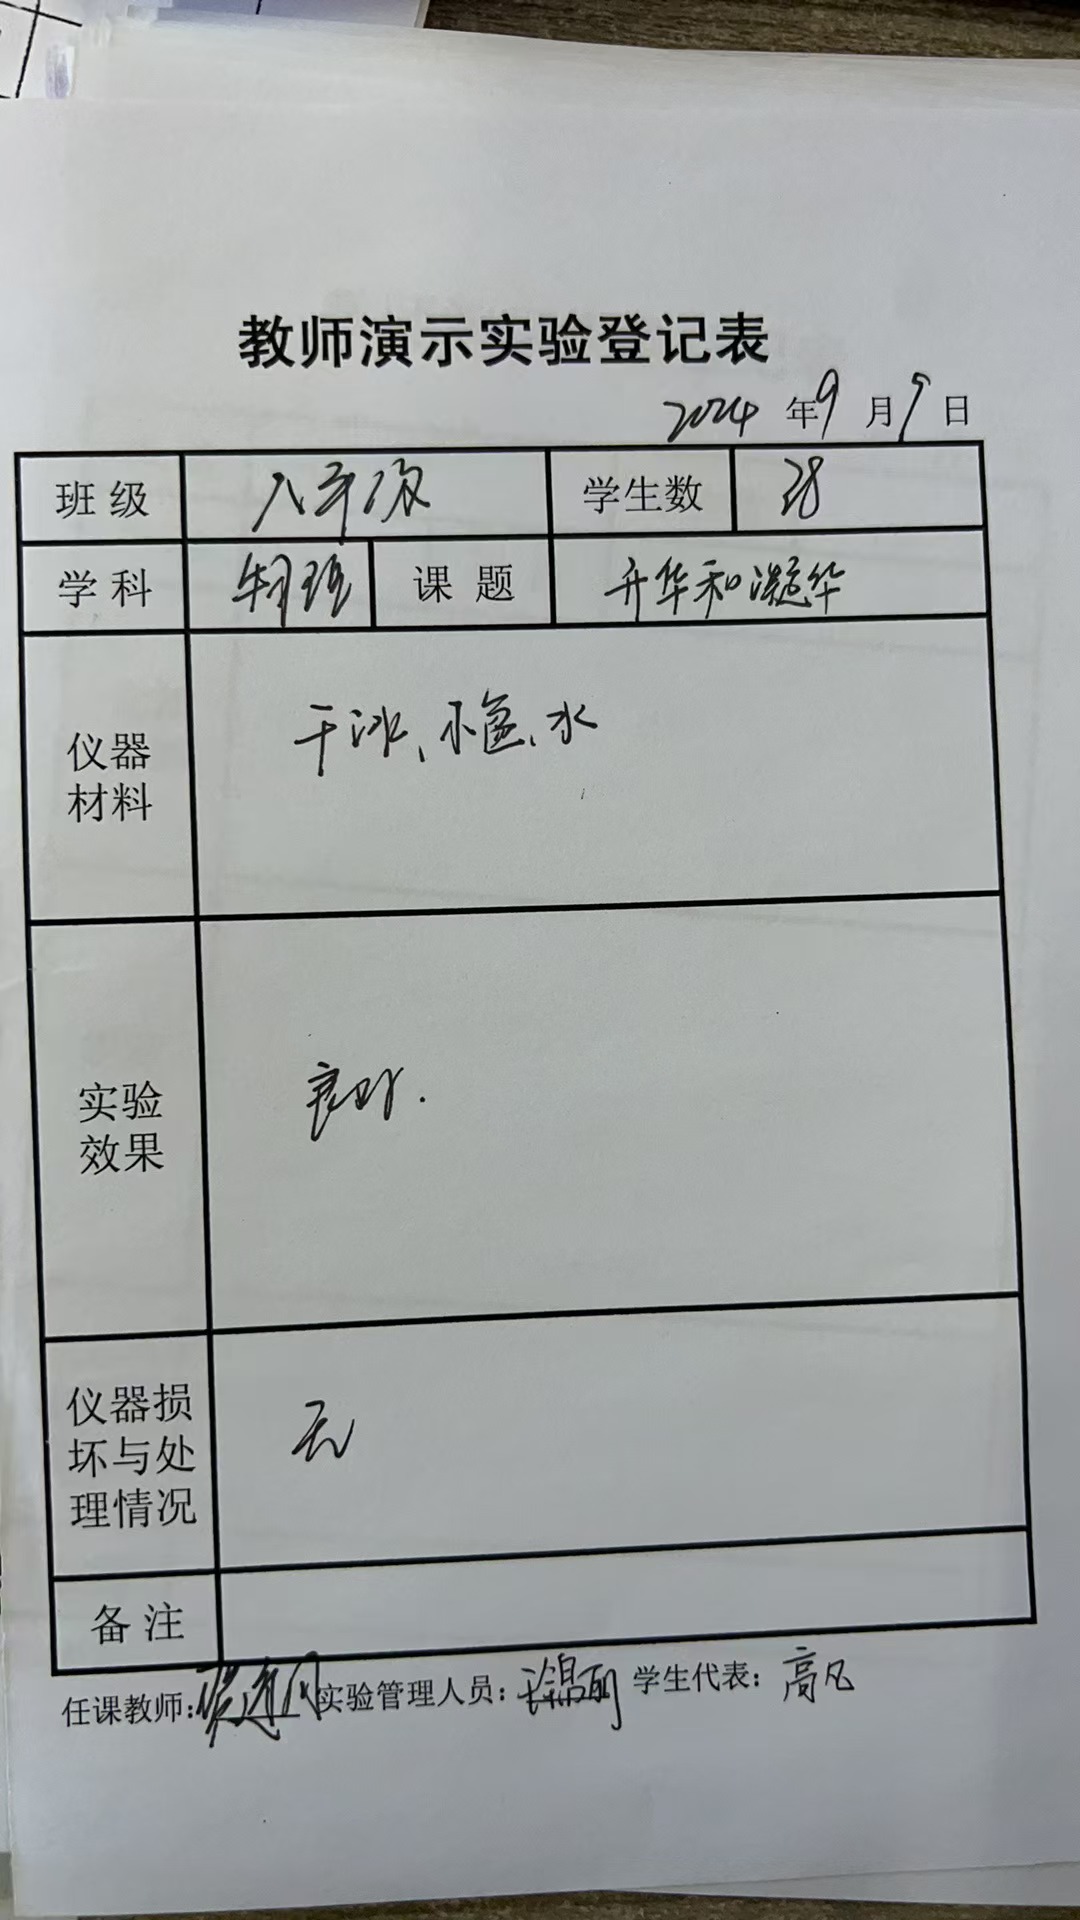 教师演示实验登记表
2024 年 9 月 9 日
班级 八年级 学生数 28
学科 物理 课题 升华和凝华
仪器材料 干冰、水盆、水
实验效果 良好.
仪器损坏与处理情况 无
备注
任课教师: 实验管理人员: 学生代表: 高凡